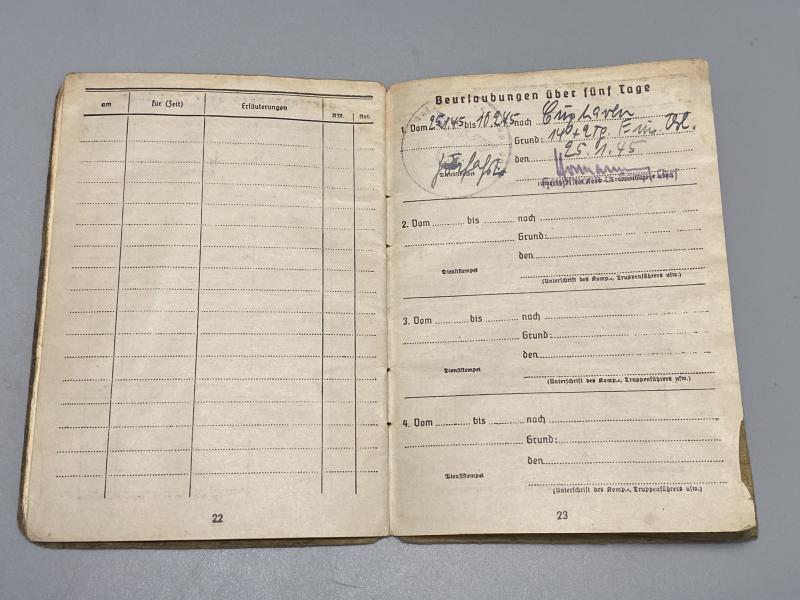 am für (Zeit) Erläuterungen RM. Rpf.
22
Beurlaubungen über fünf Tage
1. Vom 25.1.45 bis 10.2.45 nach Cuxhaven
Grund: 14 + 2 Tg.
den 25.1.45
Dienststempel
2. Vom bis nach
Grund:
den
Dienststempel
(Unterschrift des Komp.-, Truppenführers usw.)
3. Vom bis nach
Grund:
den
Dienststempel
(Unterschrift des Komp.-, Truppenführers usw.)
4. Vom bis nach
Grund:
den
Dienststempel
(Unterschrift des Komp.-, Truppenführers usw.)
23